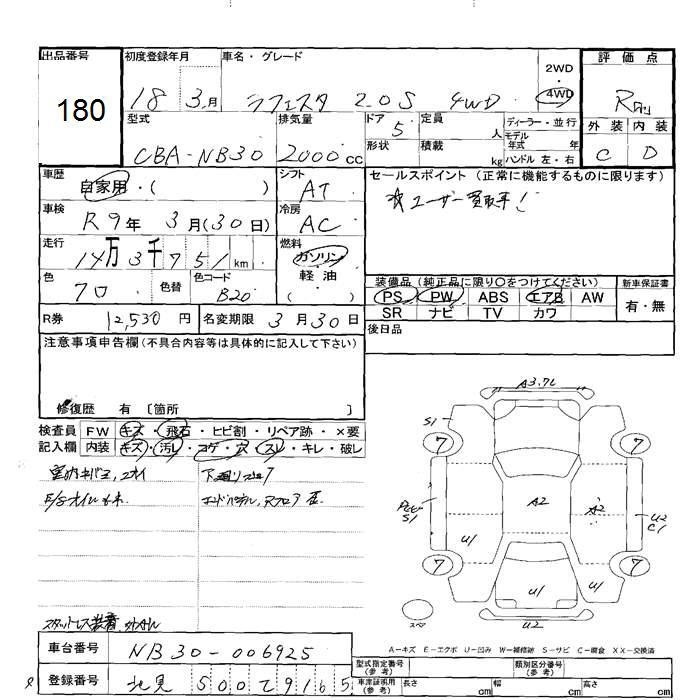 出品番号 初度登録年月 車名・グレード 2WD ・ 4WD 評価点
180 18 3月 ラフェスタ 2.0S 4WD
型式 排気量 ドア 定員 ディーラー・並行 外装 内装
CBA-NB30 2000cc 5 人 モデル年式 年 C D
形状 積載 kg ハンドル 左・右
車歴 シフト セールスポイント (正常に機能するものに限ります)
自家用・( ) AT
車検 冷房
R9年 3月(30日) AC
走行 燃料
14万3千751km ガソリン
軽油
色 色替 色コード ( )
クロ B20
装備品 (純正品に限り○をつけてください) 新車保証書
PS PW ABS エアB AW 有・無
SR ナビ TV カワ
R券 12,530円 名変期限 3月30日
後日品
注意事項申告欄(不具合内容等は具体的に記入して下さい)
修復歴 有 〔箇所 〕
検査員 FW キズ・飛石・ヒビ割・リペア跡・×要
記入欄 内装 キズ・汚レ・コゲ・穴・スレ・キレ・破レ
A3.7L
S1
7 7
A2 A2
S1 U2
C1
U1
7 7
U1 U1
U2
スペ
A-キズ E-エクボ U-凹み W-補修跡 S-サビ C-腐食 XX-交換済
車台番号 NB30-006925
型式指定番号(参考) 類別区分番号(参考)
登録番号 北見 500 て 9165
車庫証明用(参考) 長さ cm 幅 cm 高さ cm